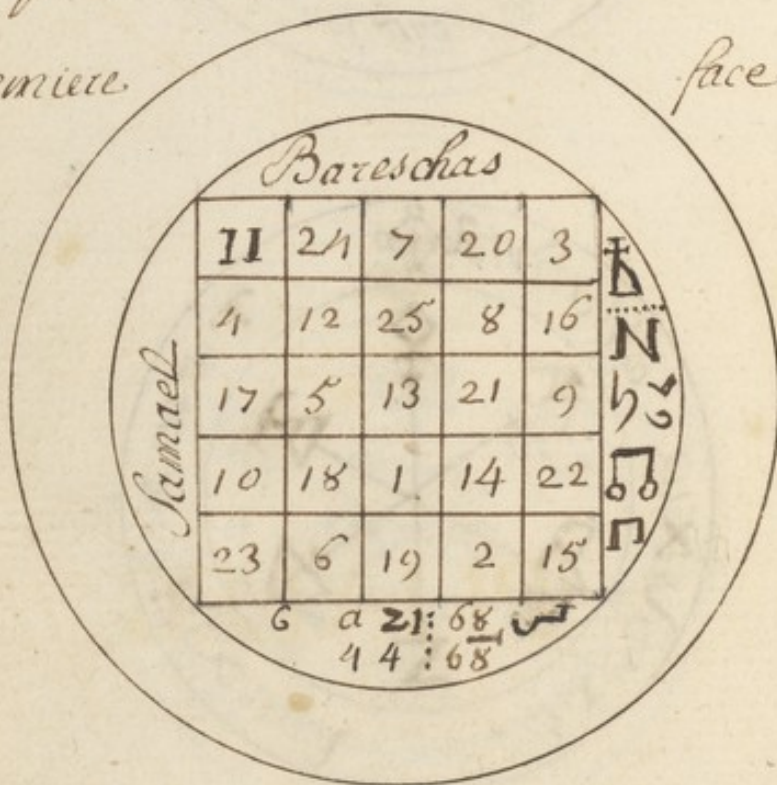 face
Bareschas
Samael
11 24 7 20 3
4 12 25 8 16
17 5 13 21 9
10 18 1 14 22
23 6 19 2 15
6 a 21: 68
4 4 : 68